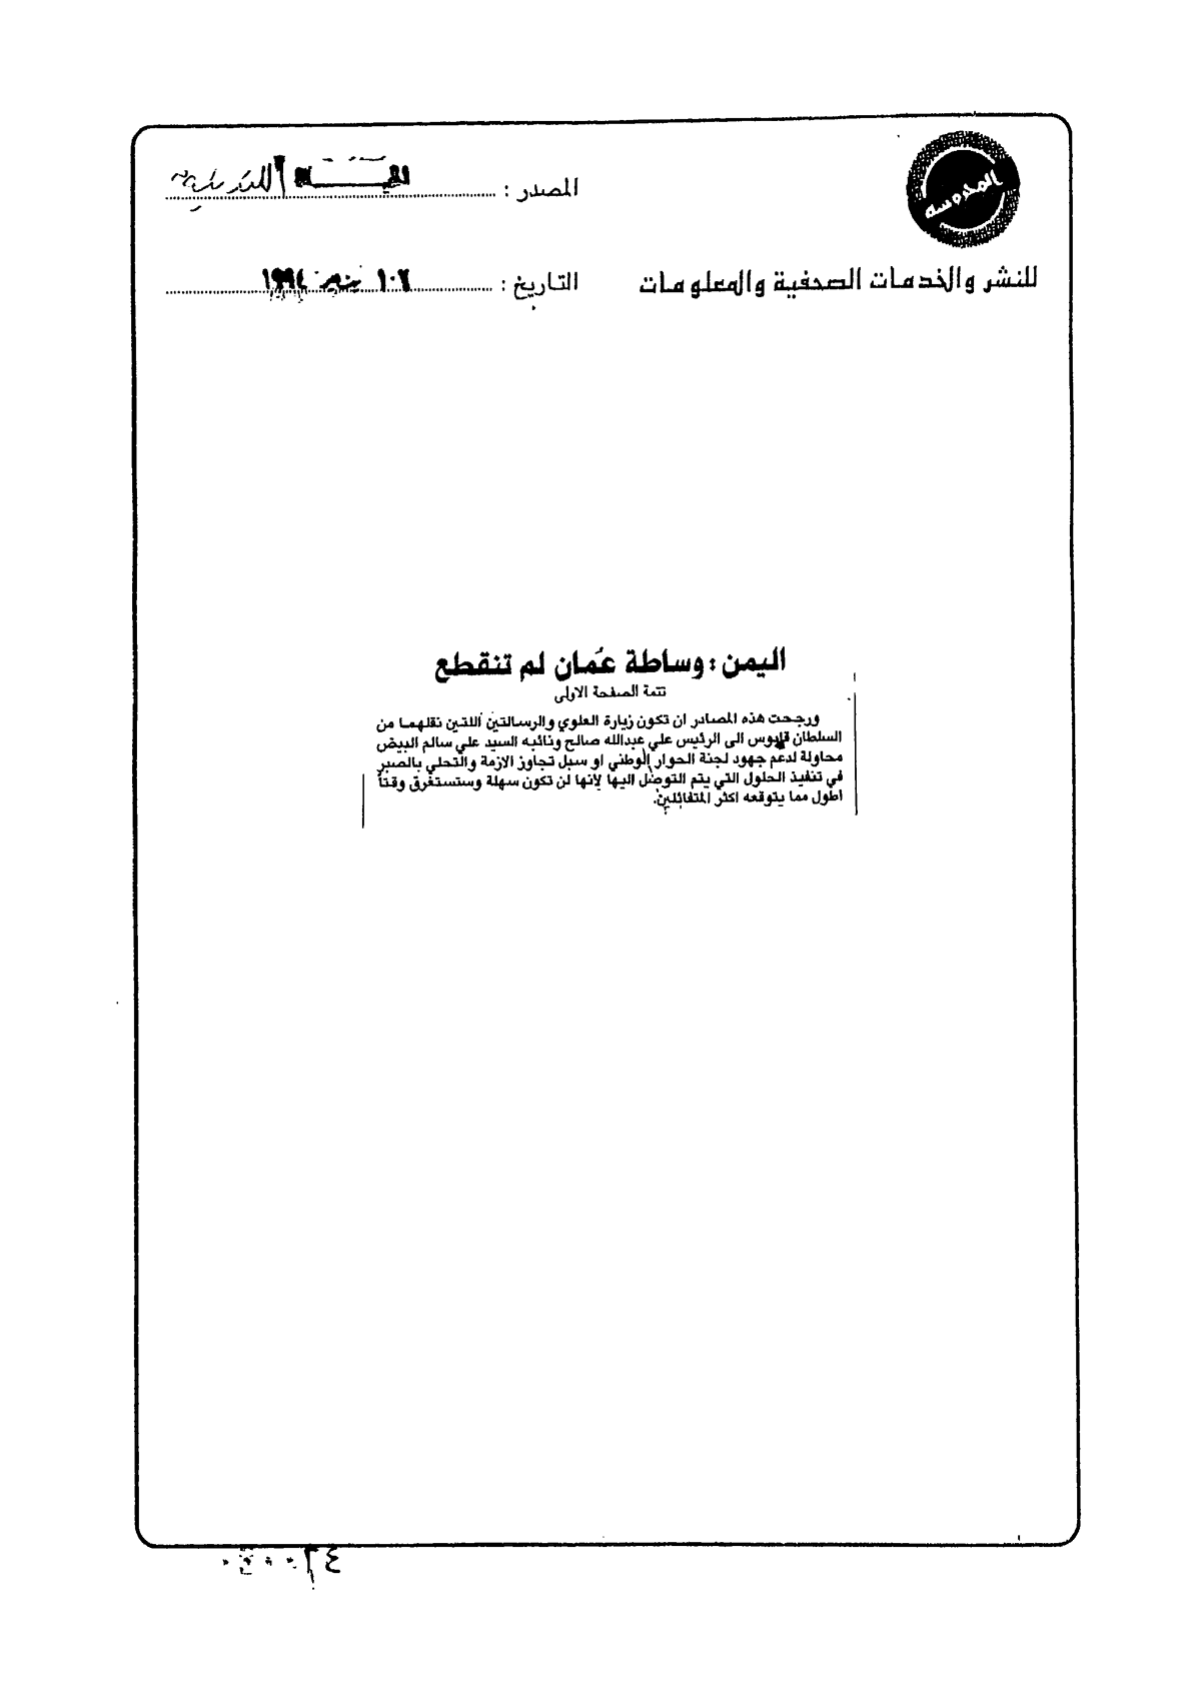 المحروسة
المصدر : الحياة اللندنية
للنشر والخدمات الصحفية والمعلومات
التاريخ : يناير ١٩٩٤
اليمن : وساطة عُمان لم تنقطع
تتمة الصفحة الاولى
ورجحت هذه المصادر ان تكون زيارة العلوي والرسالتين اللتين نقلهما من
السلطان قابوس الى الرئيس علي عبدالله صالح ونائبه السيد علي سالم البيض
محاولة لدعم جهود لجنة الحوار الوطني او سبل تجاوز الازمة والتحلي بالصبر
في تنفيذ الحلول التي يتم التوصل اليها لانها لن تكون سهلة وستستغرق وقتاً
اطول مما يتوقعه اكثر المتفائلين.